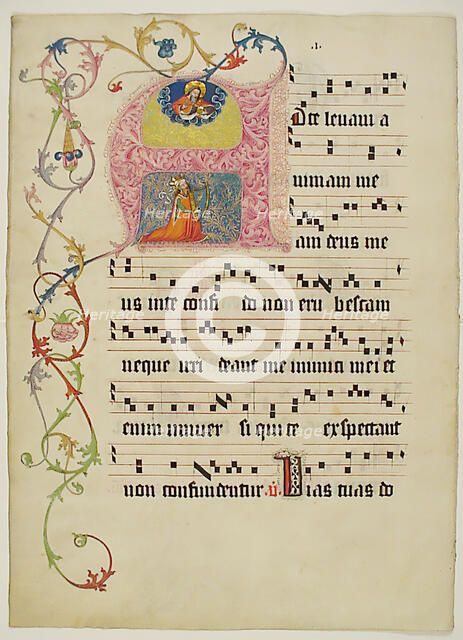 .1.
A Dte leuaui a
nimam me
am deus me
us inte confi do non eru bescam
neque irri deant me inimici mei et
enim uniuer si qui te exspectant
non confundentur. V. Vias tuas do
©
Heritage
Heritage
Heritage
Heritage